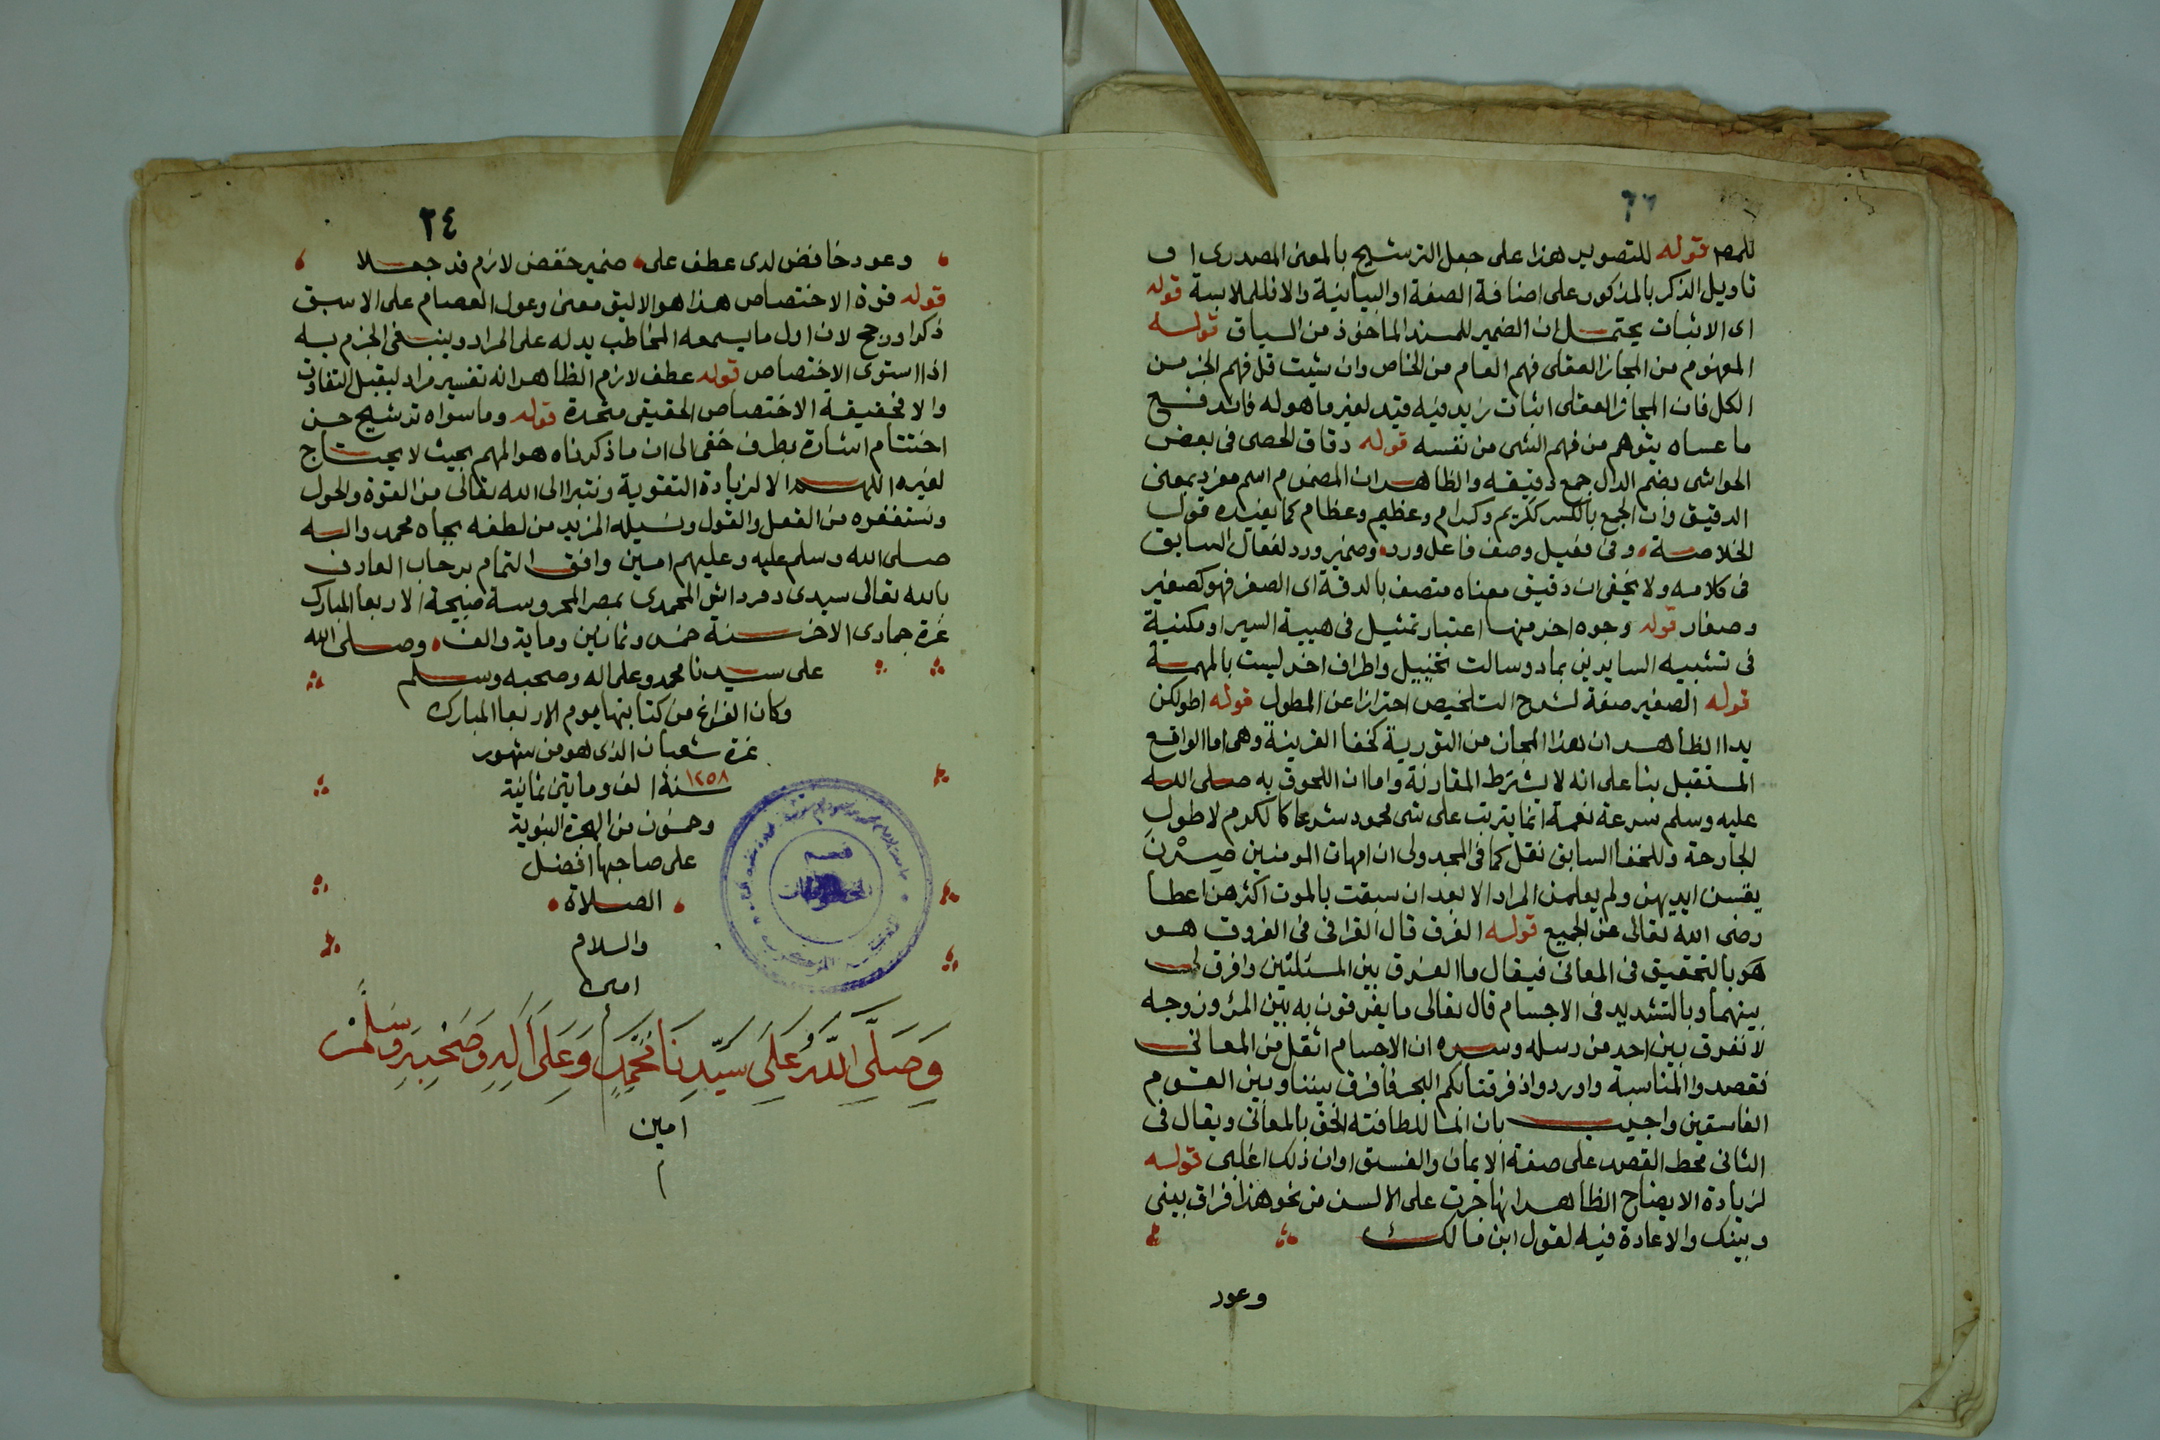 ٦٦
للمص قوله للتصوير هذا على جعل الترشيح بالمعنى المصدرى او
تاويل الذكر بالمذكور على اضافة الصفة او البيانية والا فللملابسة قوله
اى الاثبات يحتمل ان الضمير للمسند الماخوذ من السياق قوله
المفهوم من المجاز العقلى فهم العام من الخاص وان شيت قل فهم الجز من
الكل فان المجاز العقلى اثبات زايد فيه قيد لغير ما هوله فاندفع
ما عساه يتوهم من فهم الشى من نفسه قوله دقاق الحصى فى بعض
الحواشى بضم الدال جمع دقيقه والظاهر ان المضموم اسم مفرد بمعنى
الدقيق وان الجمع بالكسر ككريم وكرام وعظيم وعظام كما يفيده قول
الخلاصة، وفى فعيل وصف فاعل ورد، وضمير ورد لفعال السابق
فى كلامه ولا يخفى ان دقيق معناه متصف بالدقة اى الصغر فهو كصغير
وصغار قوله وجوه اخر منها اعتبار تمثيل فى هيية السير او مكنية
فى تشبيه السايرين بماد وسالت تخييل واطراف اخر ليست بالمهمة
قوله الصغير صفة لشرح التلخيص احترازا عن المطول قوله اطولكن
يدا الظاهر ان هذا المجاز من التورية لخفا القرينة وهى اما الواقع
المستقبل بنا على انه لا يشترط المقارنة واما ان اللحوق به صلى الله
عليه وسلم سرعة نعمة انما يترتب على شى محمود شرعا كالكرم لا طول
الجارحة وللخفا السابق نقل كما فى المجدولى ان امهات المومنين صِرْنَ
يقسن ايديهن ولم يعلمن المراد الا بعد ان سبقت بالموت اكثرهن اعطا
رضى الله تعالى عن الجميع قوله الفرق قال القرافى فى الفروق هو
هو بالتحقيق فى المعانى فيقال ما الفرق بين المسئلتين وافرق لى
بينهما وبالتشديد فى الاجسام قال تعالى ما يفرقون به بين المرء وزوجه
لا نفرق بين احد من رسله وسره ان الاجسام اثقل من المعانى
فقصدوا المناسبة واوردوا اذ فرقنا بكم البحر فافرق بيننا وبين القوم
الفاسقين واجيب بان الما للطافته الحق بالمعانى ويقال فى
الثانى محط القصد على صفة الايمان والفسق او ان ذلك اغلبى قوله
لزيادة الايضاح الظاهر انها جرت على الالسن من نحو هذا فراق بينى
وبينك والاعادة فيه لقول ابن مالك
وعود
٢٤
وعود خافض لدى عطف على ضمير خفض لازم قد جعلا
قوله قوة الاختصاص هذا هو الاليق معنى وعول العصام على الاسبق
ذكرا ورجح لان اول ما يسمعه المخاطب يدله على المراد وينبغى الجزم به
اذا استوى الاختصاص قوله عطف لازم الظاهر انه تفسير مراد ليقبل التفاوت
والا فحقيقة الاختصاص الحقيقى متحدة قوله وما سواه ترشيح حسن
اختتام اشارة بطرف خفى الى ان ما ذكرناه هو المهم بحيث لا يحتاج
لغيره اللهم الا لزيادة التقوية ونتبرا الى الله تعالى من القوة والحول
ونستغفره من الفعل والقول ونسيله المزيد من لطفه بجاه محمد واله
صلى الله وسلم عليه وعليهم امين وافق التمام برحاب العارف
بالله تعالى سيدى دمرداش المحمدى بمصر المحروسة صبيحة الاربعا المبارك
غرة جمادى الاخر سنة خمس وثمانين ومايه والف، وصلى الله
على سيدنا محمد وعلى اله وصحبه وسلم
وكان الفراغ من كتابتها يوم الاربعا المبارك
غرة شعبان الذى هو من شهور
سنة ١٢٥٨ الف وماتين ثمانية
وخمسون من الهجرة النبوية
على صاحبها افضل
الصلاة
والسلام
امين
وَصَلَّى اللَّهُ عَلَى سَيِّدِنَا مُحَمَّدٍ وَعَلَى آلِهِ وَصَحْبِهِ وَسَلَّمْ
امين
م
قسم
المخطوطات